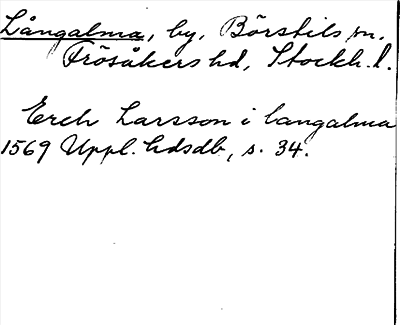 Långalma, by, Börstils sn.
Frösåkers hd, Stockh. l.
Erch Larsson i langalma
1569 Uppl. hdsdb, s. 34.